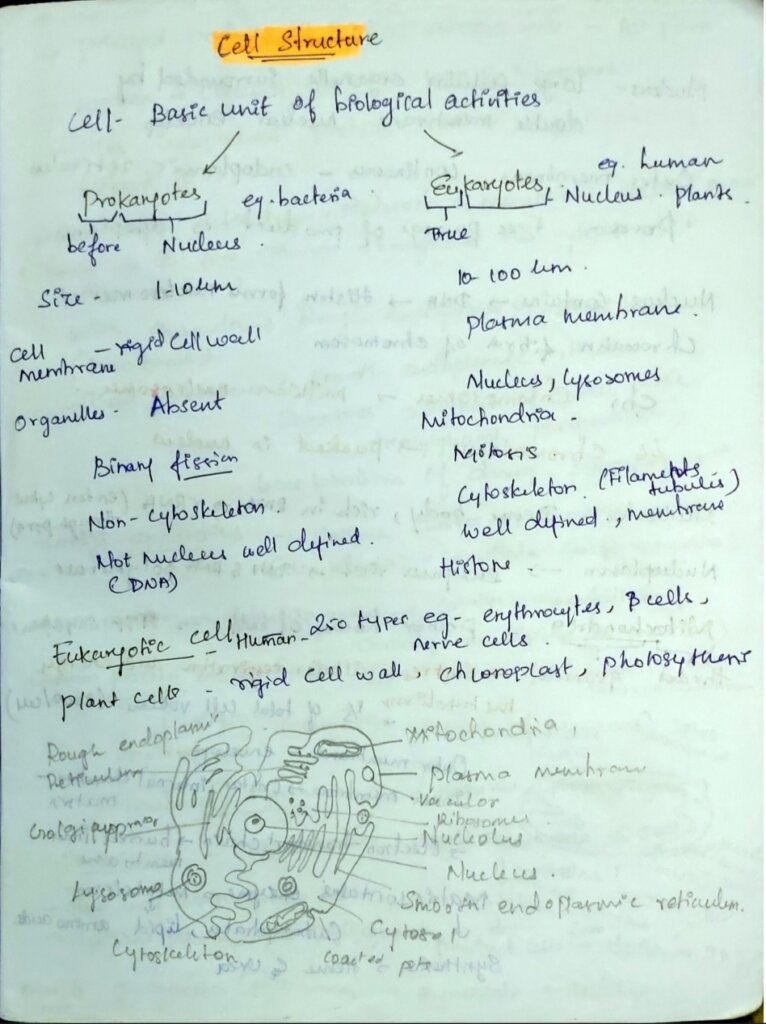 Cell Structure
Cell- Basic unit of biological activities
Prokaryotes eg. bacteria
before Nucleus.
Eukaryotes eg. human
True Nucleus. plants.
Size - 1-10um 10-100 um.
Cell membrane - rigid Cell wall Plasma membrane.
Organelles - Absent Nucleus, Lysosomes
Mitochondria -
Binary fission Mitosis
Non-Cytoskeleton. Cytoskeleton. (Filaments tubulis)
Not Nucleus well defined. well defined, membrane
(DNA) Histone.
Eukaryotic cell Human - 250 types eg- erythrocytes, B cells,
nerve cells.
Plant cells - rigid cell wall, chloroplast, photosythesis
Rough endoplamic Mitochondria,
Reticulum Plasma membrane
Vacuolor
Golgi Ribosomes
Nucleolus
Nucleus.
Lysosome Smooth endoplasmic reticulum.
Cytosol
Cytoskeleton coated